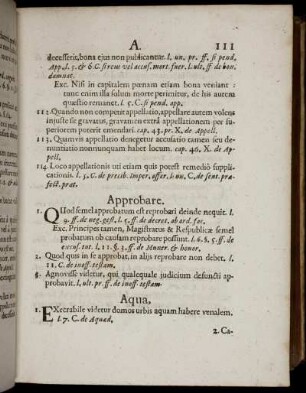 A. 111
decesserit, bona ejus non publicantur. l. un. pr. ff. si pend.
App. l. 3. & 6. C. si reus vel accus. mort. fuer. l. ult. ff. de bon.
damnat.
Exc. Nisi in capitalem pœnam etiam bona veniant:
tunc enim illa solum morte perimitur, de his autem
quæstio remanet. l. 5. C. si pend. app.
112. Quando non competit appellatio, appellare autem volens
injuste se gravatus, gravamen extra appellationem per su-
periorem poterit emendari. cap. 43. pr. X. de Appell.
113. Quamvis appellatio denegetur accusatio tamen seu de-
nuntiatio nonnunquam habet locum. cap. 46. X. de Ap-
pell.
114. Loco appellationis uti etiam quis potest remedio suppli-
cationis. l. 5. C. de precib. Imper. offer. l. un. C. de sent. præ-
fect. præt.
Approbare.
1. QUod semel approbatum est reprobari deinde nequit. l.
4. ff. de neg. gest. l. 5. ff. de decret. ab ord. fac.
Exc. Principes tamen, Magistratus & Respublicæ semel
probatum ob causam reprobare possunt. l. 6. §. 5. ff. de
excus. tut. l. 11. §. 3. ff. de Muner. & honor.
2. Quod quis in se approbat, in aliis reprobare non debet. l.
11. C. de inoff. testam.
3. Agnovisse videtur, qui qualequale judicium defuncti ap-
probavit. l. ult. pr. ff. de inoff. testam.
Aqua.
1. EXecrabile videtur domos urbis aquam habere venalem.
l. 7. C. de Aquæd.
2. Ca-